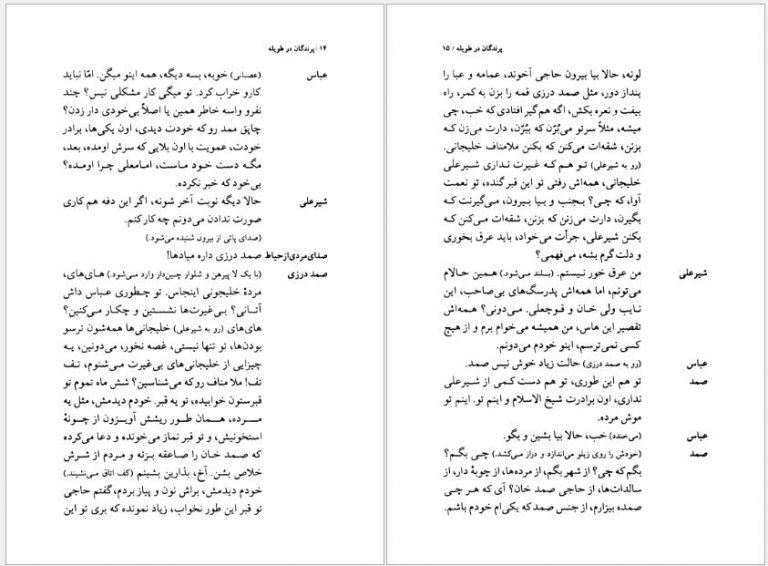 ۱۴ / پرندگان در طویله
عباس (عصبانی) خوبه، بسه دیگه، همه اینو میگن. امّا نباید
کارو خراب کرد. تو میگی کار مشکلی نیس؟ چند
نفرو واسه خاطر همین یا اصلاً بی‌خودی دار زدن؟
چاپق ممد رو که خودت دیدی، اون یکی‌ها، برادر
خودت، عمویت با اون بلایی که سرش اومده، بعد،
مگه دست خود ماست، امامعلی چرا اومده؟
بی‌خود که خبر نکرده.
شیرعلی حالا دیگه نوبت آخر شونه، اگر این دفه هم کاری
صورت ندادن می‌دونم چه کار کنم.
(صدای پائی از بیرون شنیده می‌شود.)
صدای‌مردی‌ازحیاط صمد درزی داره میادها!
صمد درزی (با یک لا پیرهن و شلوار چین‌دار وارد می‌شود.) های‌های،
مردهٔ خلیجونی اینجاس. تو چطوری عباس داش
آتانی؟ بی‌غیرت‌ها نشستین و چکار می‌کنین؟
های‌های (رو به شیرعلی) خلیجانی‌ها همه‌شون ترسو
بودن‌ها، تو تنها نیستی، غصه نخور، می‌دونین، یه
چیزایی از خلیجانی‌های بی‌غیرت می‌شنوم، تف
تف! ملا مناف رو که می‌شناسین؟ شش ماه تموم تو
قبرستون خوابیده، تو یه قبر. خودم دیدمش، مثل یه
مرده، همان طور ریشش آویزون از چونهٔ
استخونیش، و تو قبر نماز می‌خونده و دعا می‌کرده
که صمد خان را صاعقه بزنه و مردم از شرش
خلاص بشن. آخ، بذارین بشینم (کف اتاق می‌نشیند.)
خودم دیدمش، براش نون و پیاز بردم، گفتم حاجی
تو قبر این طور نخواب، زیاد نمونده که بری تو این
پرندگان در طویله / ۱۵
لونه، حالا بیا بیرون حاجی آخوند، عمامه و عبا را
بنداز دور، مثل صمد درزی قمه را بزن به کمر، راه
بیفت و نعره بکش، اگه هم گیر افتادی که خب، چی
میشه، مثلاً سرتو می‌بُرّن که ببُرّن، دارت می‌زن که
بزنن، شقه‌ات می‌کنن که بکنن ملامناف خلیجانی.
(رو به شیرعلی) تو هم که غیرت نداری شیرعلی
خلیجانی، همه‌اش رفتی تو این قبر گنده، تو نعمت
آوا، که چی؟ بجنب و بیا بیرون، می‌گیرنت که
بگیرن، دارت می‌زنن که بزنن، شقه‌ات می‌کنن که
بکنن شیرعلی، جرأت می‌خواد، باید عرق بخوری
و دلت گرم بشه، می‌فهمی؟
شیرعلی من عرق خور نیستم. (بلند می‌شود.) همین حالام
می‌تونم، اما همه‌اش پدرسگ‌های بی‌صاحب، این
نایب ولی خان و قوچعلی. می‌دونی؟ همه‌اش
تقصیر این هاس، من همیشه می‌خوام برم و از هیچ
کسی نمی‌ترسم، اینو خودم می‌دونم.
عباس (رو به صمد درزی) حالت زیاد خوش نیس صمد.
صمد تو هم این طوری، تو هم دست کمی از شیرعلی
نداری، اون برادرت شیخ الاسلام و اینم تو. اینم تو
موش مرده.
عباس (می‌خندد) خب، حالا بیا بشین و بگو.
صمد (خودش را روی زیلو می‌اندازد و دراز می‌کشد.) چی بگم؟
بگم که چی؟ از شهر بگم، از مرده‌ها، از چوبهٔ دار، از
سالدات‌ها، از حاجی صمد خان؟ آی که هر چی
صمده بیزارم، از جنس صمد که یکی‌ام خودم باشم.